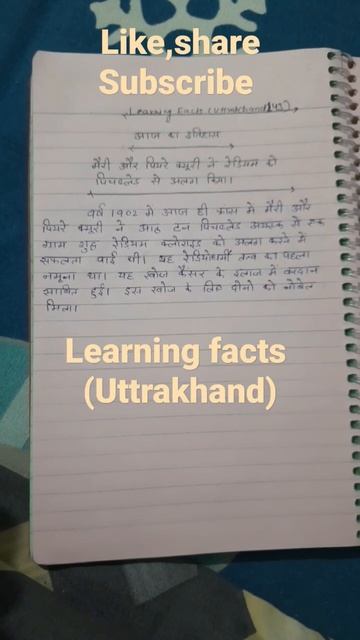 Like,share
Subscribe
Learning Facts (Uttrakhand
आज का इतिहास
मैरी और पियरे क्यूरी ने रेडियम को
पिचब्लेड से अलग किया।
वर्ष 1902 मे आज ही फ्रांस मे मैरी और
पियरे क्यूरी ने आठ टन पिचब्लेड अयस्क मे एक
ग्राम शुद्ध रेडियम क्लोराइड को अलग करने मे
सफलता पाई थी। यह रेडियोधर्मी तत्व का पहला
नमूना था। यह खोज कैंसर के इलाज मे वरदान
साबित हुई। इस खोज के लिए दोनो को नोबेल
मिला।
Learning facts
(Uttrakhand)